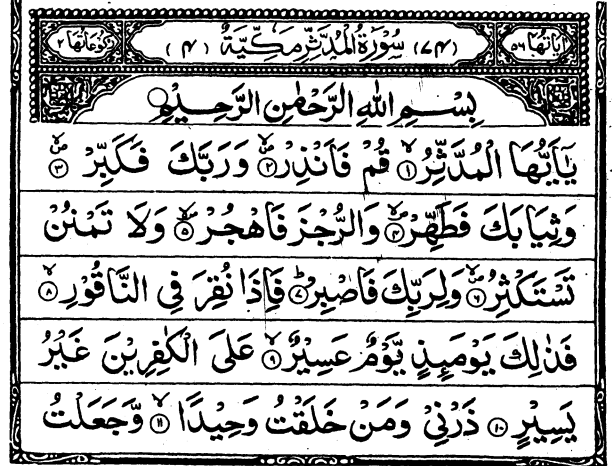 اٰيَاتُهَا ٥٦ (٧٤) سُوْرَةُ الْمُدَّثِّرِ مَكِّيَّةٌ (٤) رُكُوْعَاتُهَا ٢
بِسْمِ اللهِ الرَّحْمٰنِ الرَّحِيْمِ
يٰۤاَيُّهَا الْمُدَّثِّرُ ۙ﴿١﴾ قُمْ فَاَنْذِرْ ۪ۙ﴿٢﴾ وَرَبَّكَ فَكَبِّرْ ۪ۙ﴿٣﴾
وَثِيَابَكَ فَطَهِّرْ ۪ۙ﴿٤﴾ وَالرُّجْزَ فَاهْجُرْ ۪ۙ﴿٥﴾ وَلَا تَمْنُنْ
تَسْتَكْثِرُ ۪ۙ﴿٦﴾ وَلِرَبِّكَ فَاصْبِرْ ؕ﴿٧﴾ فَاِذَا نُقِرَ فِى النَّاقُوْرِ ۙ﴿٨﴾
فَذٰلِكَ يَوْمَئِذٍ يَّوْمٌ عَسِيْرٌ ۙ﴿٩﴾ عَلَى الْكٰفِرِيْنَ غَيْرُ
يَسِيْرٍ ﴿١٠﴾ ذَرْنِىْ وَمَنْ خَلَقْتُ وَحِيْدًا ۙ﴿١١﴾ وَّجَعَلْتُ